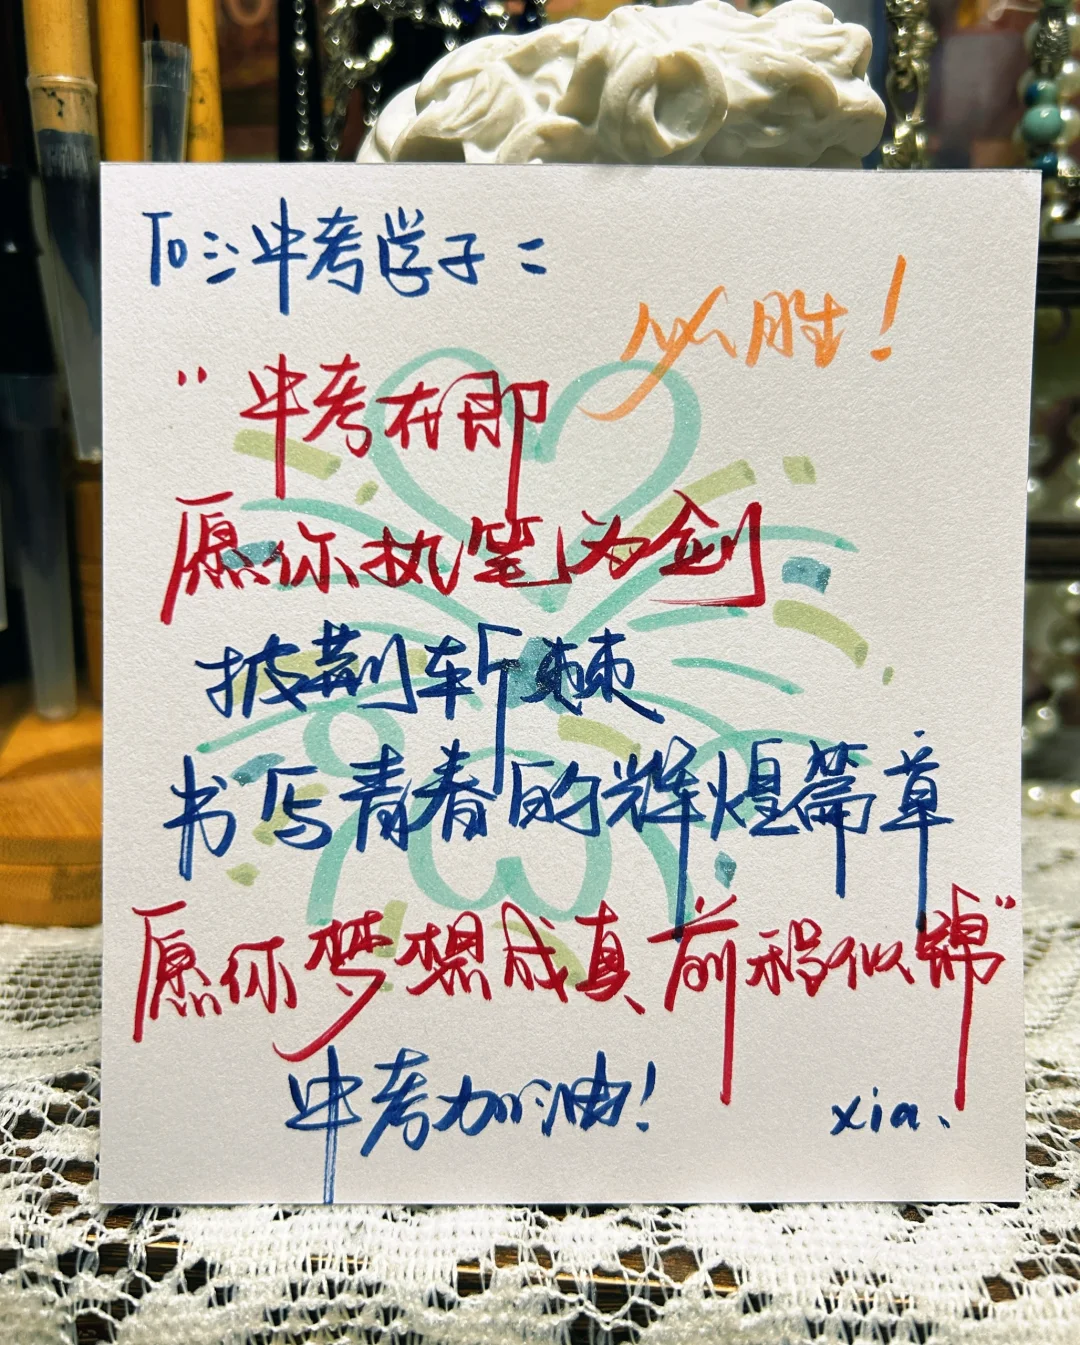 To:中考学子:
必胜!
"中考在即
愿你执笔为剑
披荆斩棘
书写青春的辉煌篇章
愿你梦想成真 前程似锦"
中考加油!
xia.